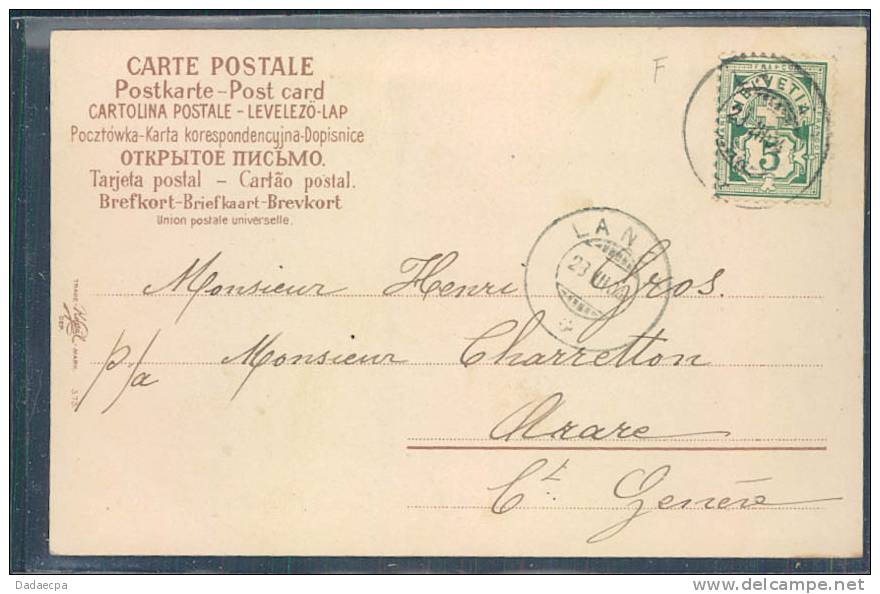 CARTE POSTALE
Postkarte - Post card
CARTOLINA POSTALE - LEVELEZÖ-LAP
Pocztówka-Karta korespondencyjna-Dopisnice
ОТКРЫТОЕ ПИСЬМО.
Tarjeta postal - Cartão postal.
Brefkort-Briefkaart-Brevkort
Union postale universelle.
F
HELVETIA
5
LAN
23
Monsieur Henri Gros.
p/a Monsieur Charretton
Arare
Ct. Genève
TRADE MARK
373
Dadaecpa
http://www.delcampe.net